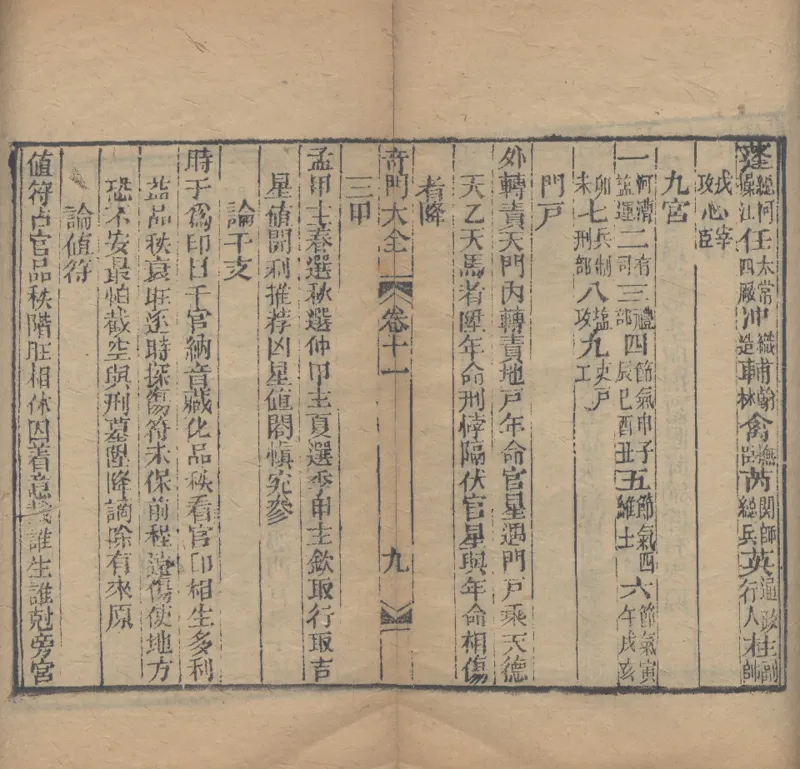 蓬總河操江任太常四厰冲織造輔翰林禽撫臣芮関師總兵英通政行人柱副師
戎攻心宰臣
九宮
一河漕塩運二有司三禮部四節氣申子辰巳酉丑五節氣四維土六節氣寅午戌亥
卯未七兵制刑部八塩攻九吏戸工
門戸
外轉責天門內轉責地戸年命官星遇門戸乘天德
天乙天馬者陞年命刑悖隔伏官星與年命相傷
者降
奇門大全 卷十一 九
三甲
孟甲主春選秋選仲甲主夏選季甲主欽取行取吉
星値開利推荐凶星値闔愼究參
論干支
時于爲印日干官納音藏化品秩看官印相生多利
益品秩衰旺逐時探傷符未保前程遠傷使地方
恐不安最怕截空與刑墓陞降謫除有來原
論値符
値符占官品秩階旺相休囚着意裁誰生誰尅旁宮